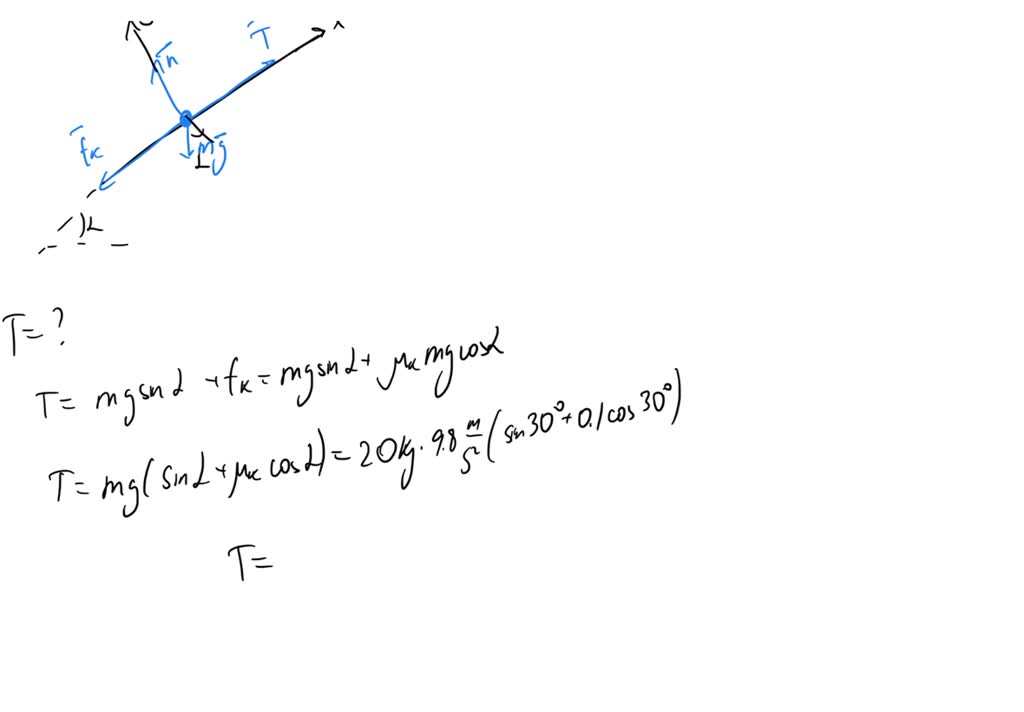 y
x
n̄
T̄
f̄ₖ
mḡ
α
α
T = ?
T = mg sin α + fₖ = mg sin α + μₖ mg cos α
T = mg( sin α + μₖ cos α) = 20 kg · 9.8 m/s² ( sin 30° + 0.1 cos 30° )
T =